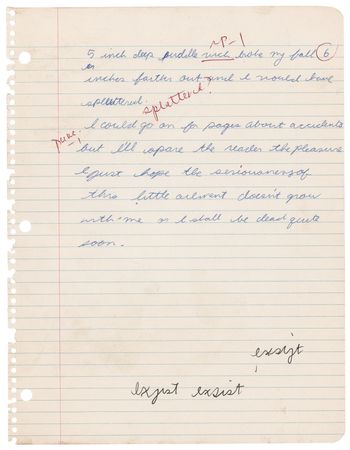 5 inch deep puddle wich broke my fall 6
inches farther out and i would have
splettered. splattered?
I could go on for pages about accidents
but I'll spare the reader the pleasure
I just hope the seriousness of
this little ailment doesn't grow
with me or I shall be dead quite
soon.
exsist